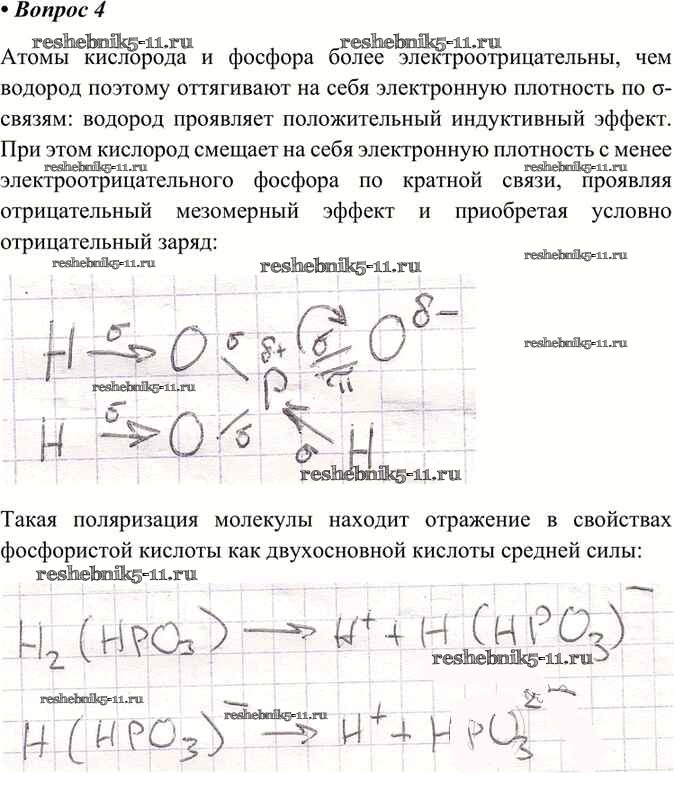 • Вопрос 4
reshebnik5-11.ru reshebnik5-11.ru
Атомы кислорода и фосфора более электроотрицательны, чем
водород поэтому оттягивают на себя электронную плотность по σ-
связям: водород проявляет положительный индуктивный эффект.
При этом кислород смещает на себя электронную плотность с менее
reshebnik5-11.ru reshebnik5-11.ru
электроотрицательного фосфора по кратной связи, проявляя
отрицательный мезомерный эффект и приобретая условно
отрицательный заряд:
reshebnik5-11.ru reshebnik5-11.ru reshebnik5-11.ru
H σ O σ δ+ σ O δ−
reshebnik5-11.ru P π reshebnik5-11.ru
H σ O σ σ H
reshebnik5-11.ru
Такая поляризация молекулы находит отражение в свойствах
фосфористой кислоты как двухосновной кислоты средней силы:
reshebnik5-11.ru
H₂(HPO₃) → H⁺ + H(HPO₃)⁻
reshebnik5-11.ru
reshebnik5-11.ru reshebnik5-11.ru
H(HPO₃)⁻ → H⁺ + HPO₃²⁻